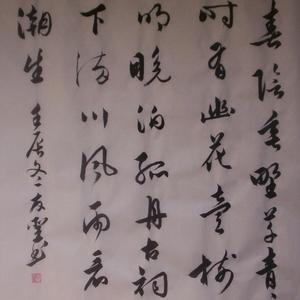 春陰垂野草青々
时有幽花壹樹
明晚泊孤舟古祠
下满川风雨看
潮生 壬辰冬